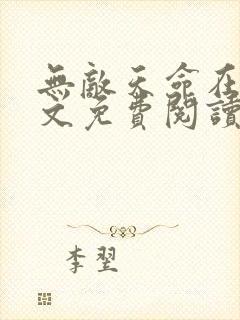 無敵天命在
文免費閱讀
李翌